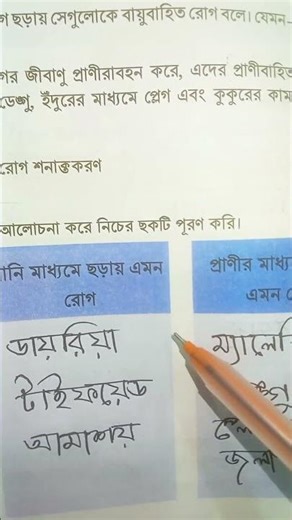 ছড়ায় সেগুলোকে বায়ুবাহিত রোগ বলে। যেমন-
জীবাণু প্রাণীরা বহন করে, এদের প্রাণীবাহিত
ডেঙ্গু, ইঁদুরের মাধ্যমে প্লেগ এবং কুকুরের
রোগ শনাক্তকরণ
আলোচনা করে নিচের ছকটি পূরণ করি।
মাধ্যমে ছড়ায় এমন
রোগ
প্রাণীর
এমন
ডায়রিয়া
টাইফয়েড
আমাশয়
জলা